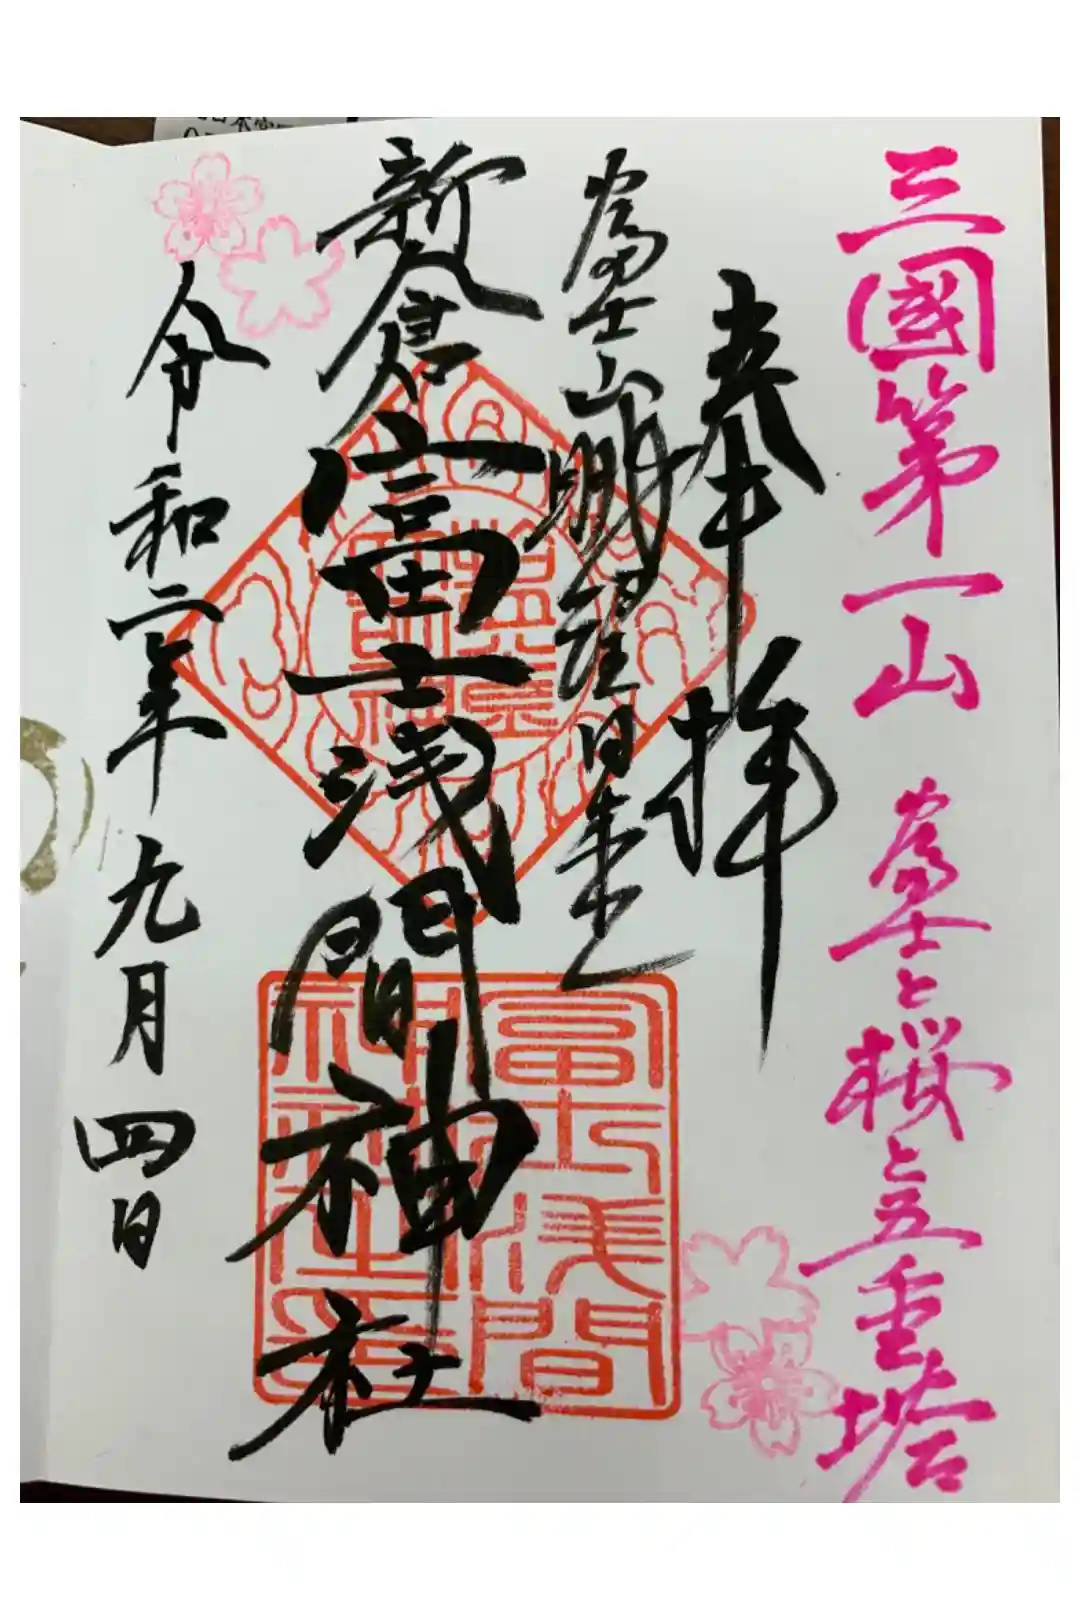 三國第一山 富士と桜と五重塔
奉拝
新倉富士浅間神社
令和二年九月四日
富士浅間
神社之章